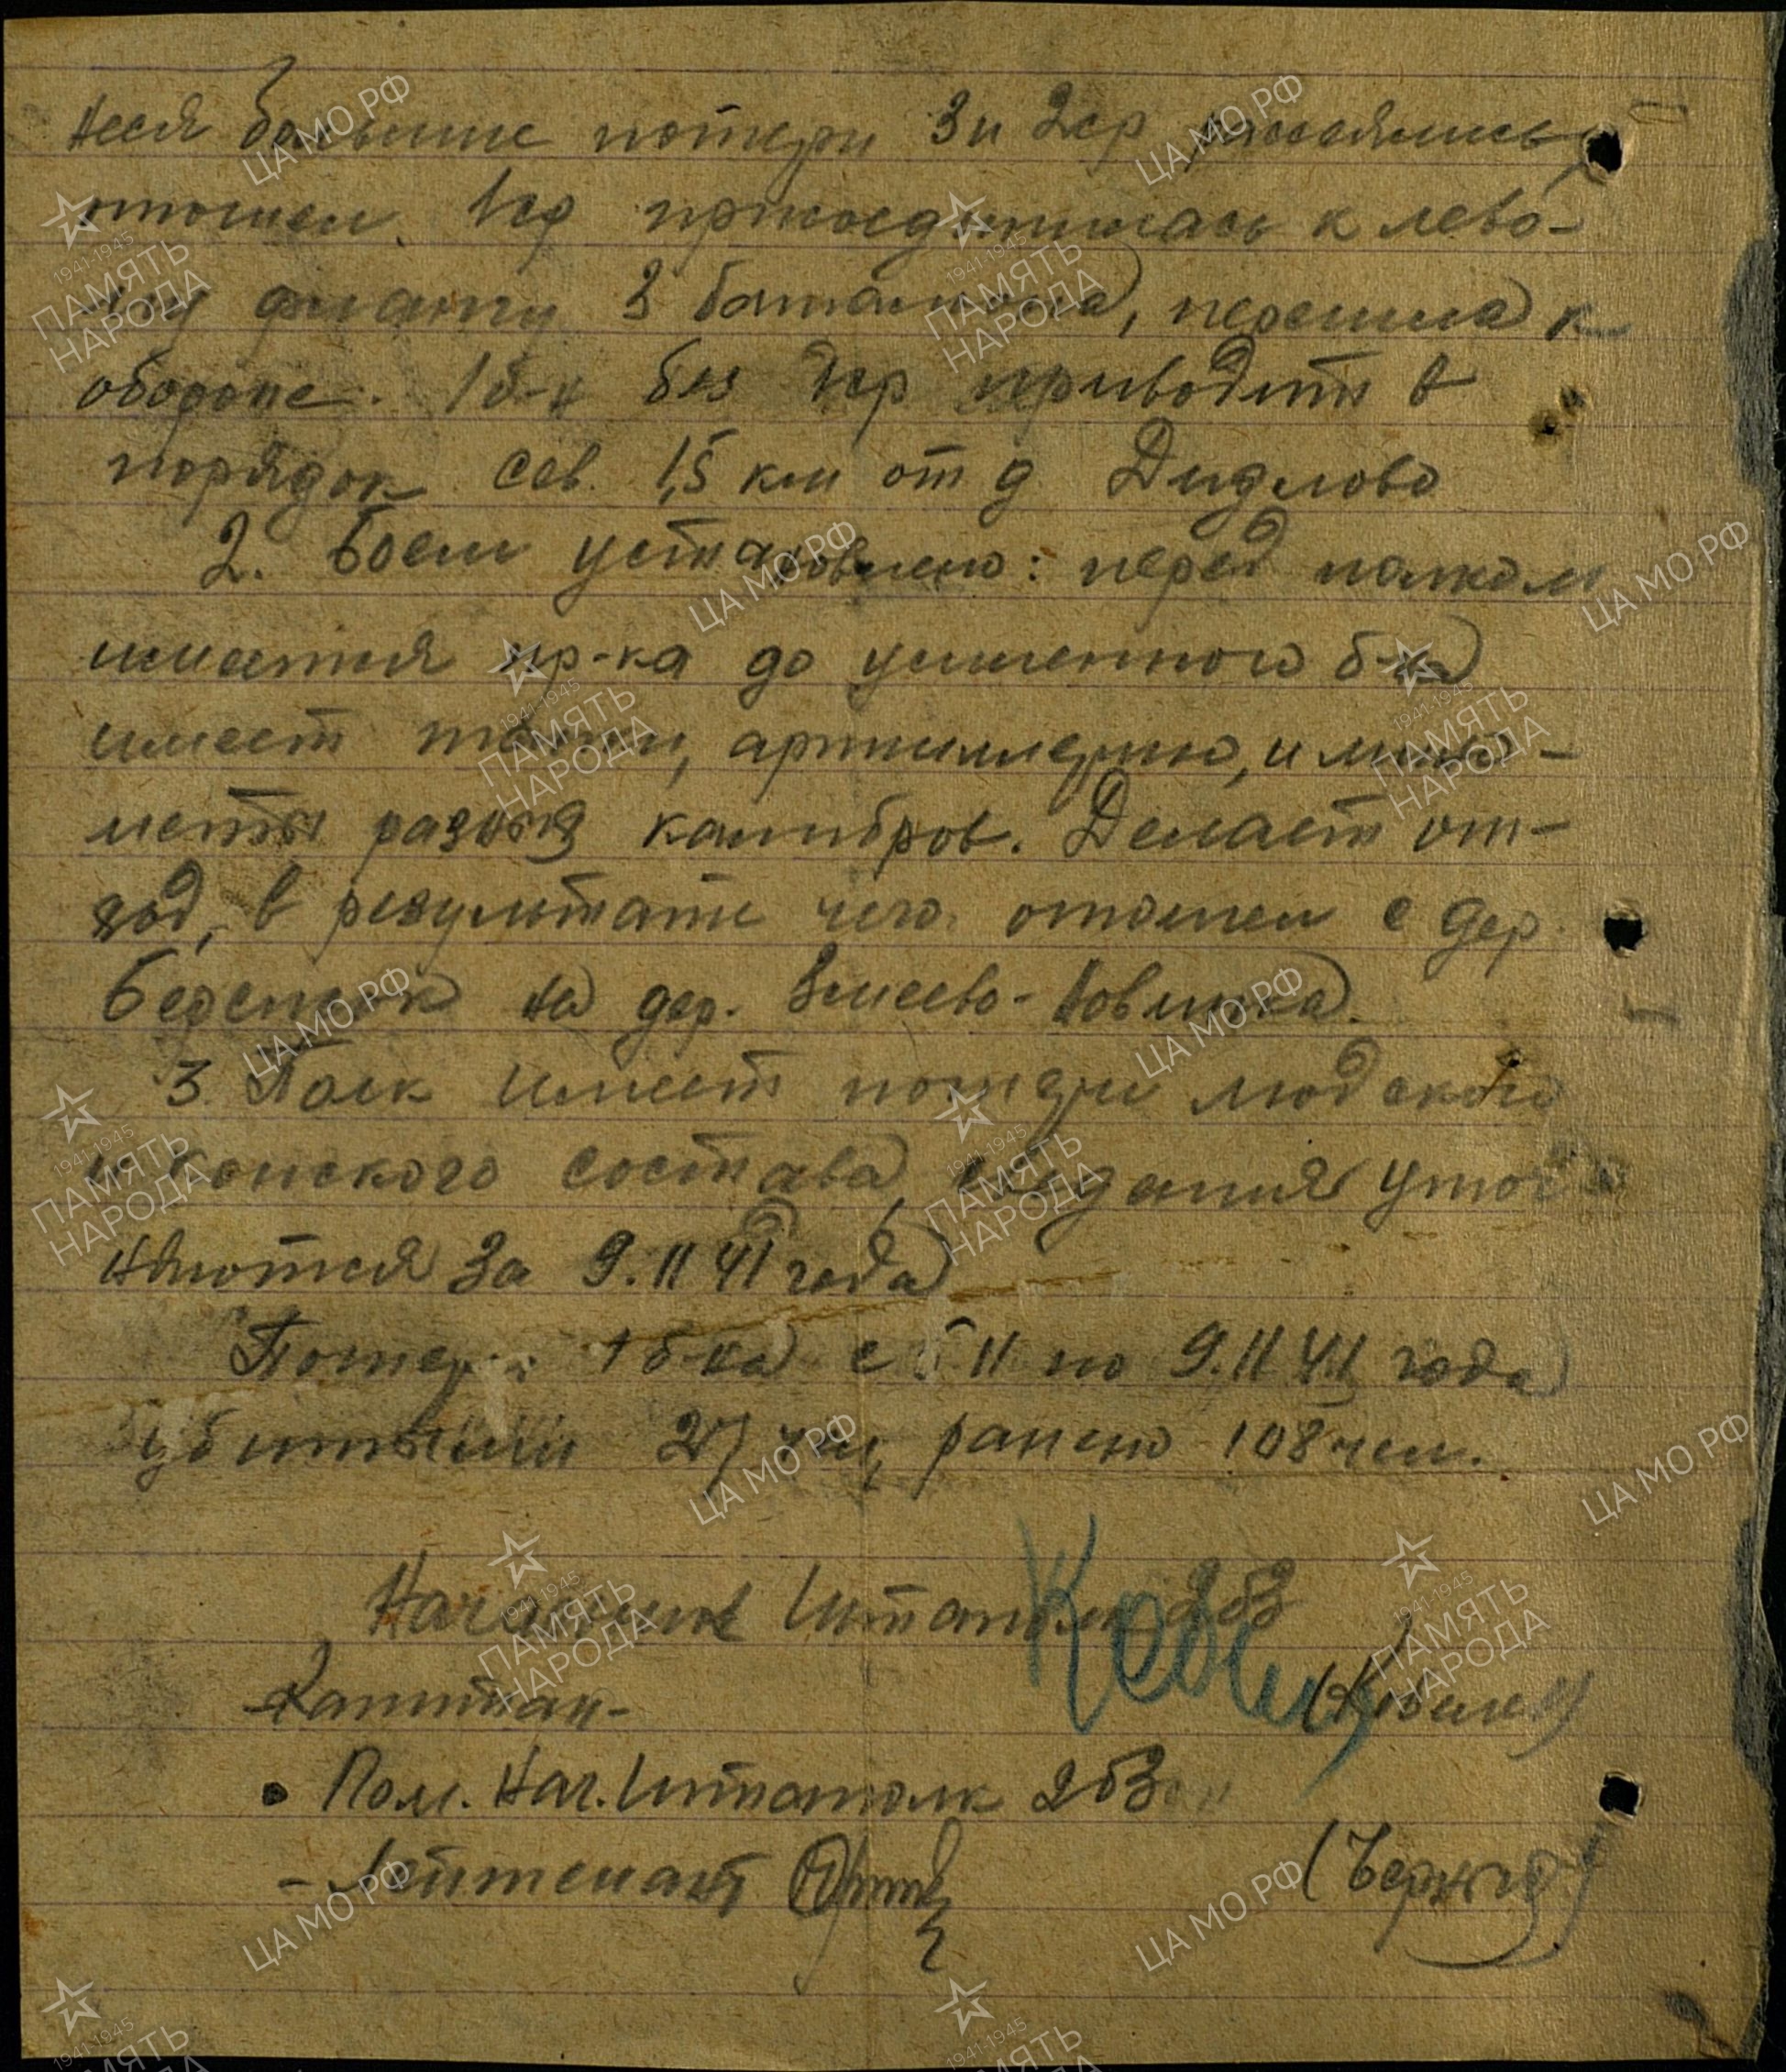 неся большие потери 3 и 2ср рассеялись,
отошел. 1ср присоединилась к лево-
му флангу 3 баталиона, перешла к
обороне. 1 б-н без 1ср приводится в
порядок сев. 1,5 км от д Дидлово
2. Боем установлено: перед полком
имеется пр-ка до усиленного б-на
имеет танки, артиллерию, и мино-
меты разных калибров. Делает от-
ход, в результате чего отошел с дер.
Берепок на дер. Змеево-Новинка.
3. Полк имеет потери людского
и конского состава, сведения уточ
няются за 9.11 41 года
Потери: 1 б-на с 11 по 9.11 41 года
убитыми 27 чел, ранено 108 чел.
Начальник Штаполк 263
Капитан-
Пом. Нач. Штаполк 263
- Лейтенант
ЦА МО РФ
1941-1945
ПАМЯТЬ
НАРОДА